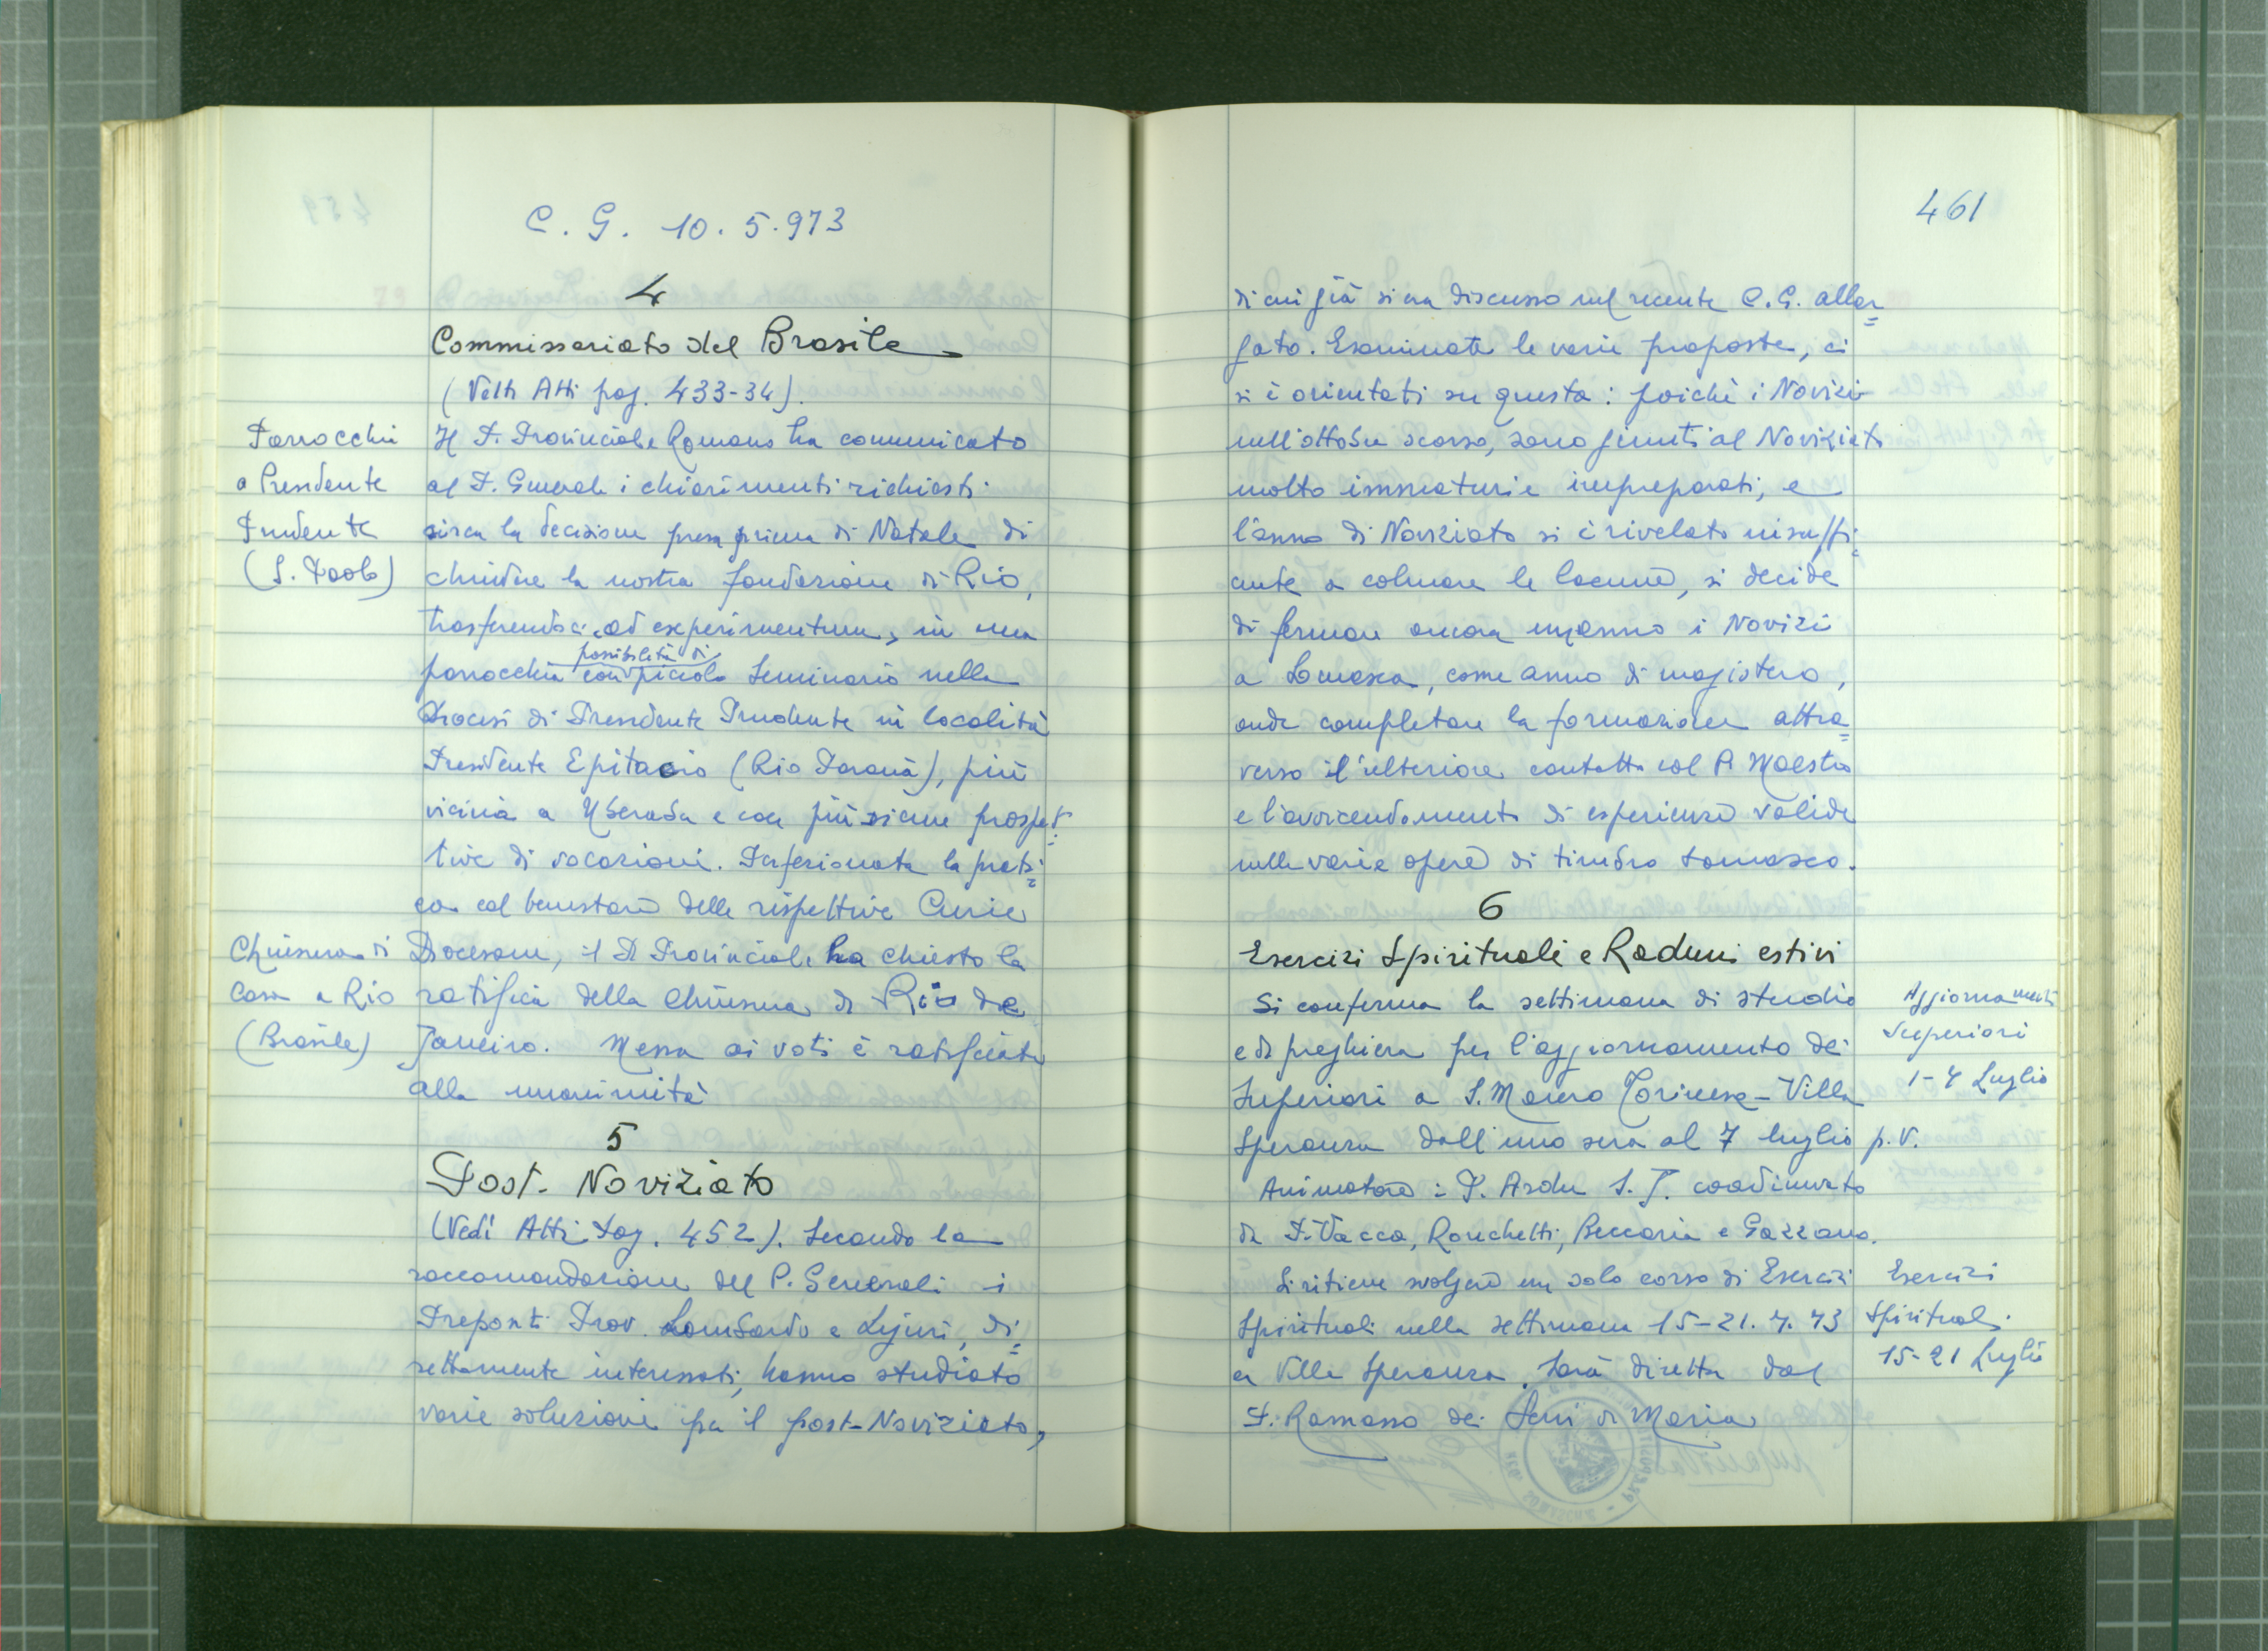 C. G. 10.5.973
4
Commissariato del Brasile
(Vedi Atti pag. 433-34).
Parrocchia
a Presidente
Prudente
(S. Paolo)
Il P. Provinciale Romano ha comunicato
al P. Generale i chiarimenti richiesti
circa la decisione presa prima di Natale di
chiudere la nostra fondazione di Rio,
trasferendoci, ad experimentum, in una
possibilità di
parrocchia con piccolo Seminario nella
Diocesi di Presidente Prudente in località
Presidente Epitacio (Rio Paranà), più
vicina a Uberaba e con più sicure prospet=
tive di vocazioni. Perfezionata la prati=
ca col benestare delle rispettive Curie
Chiusura di
Casa a Rio
(Brasile)
Diocesane, il P. Provinciale ha chiesto la
ratifica della chiusura di Rio de
Janeiro. Messa ai voti è ratificata
alla unanimità
5
Post-Noviziato
(Vedi Atti Pag. 452). Secondo la
raccomandazione del P. Generale i
Preposti Prov. Lombardo e Ligure, di=
rettamente interessati, hanno studiato
varie soluzioni per il post-Noviziato,
461
di cui già si era discusso nel recente C.G. allar=
gato. Esaminate le varie proposte, ci
si è orientati su questa: poiché i Novizi
nell'ottobre scorso, sono giunti al Noviziato
molto immaturi e impreparati, e
l'anno di Noviziato si è rivelato insuffi=
ciente a colmare le lacune, si decide
di fermare ancora un anno i Novizi
a Somasca, come anno di magistero,
onde completare la formazione attra=
verso il ulteriore contatto col P. Maestro
e l'avvicendamento di esperienze valide
nelle varie opere di timbro somasco.
6
Esercizi Spirituali e Raduni estivi
Si conferma la settimana di studio
e di preghiera per l'aggiornamento dei
Superiori a S. Mauro Torinese - Villa
Speranza dall'uno sera al 7 luglio p.v.
Aggiornamenti
Superiori
1-7 Luglio
Animatore: P. Ardu S.J. coordinato
da P. Vacca, Ronchetti, Beccaria e Gazzano.
Si ritiene svolgere un solo corso di Esercizi
Spirituali nella settimana 15-21.7.73
a Villa Speranza. Sarà diretta dal
P. Ramasso dei Servi di Maria
Esercizi
Spirituali
15-21 Luglio